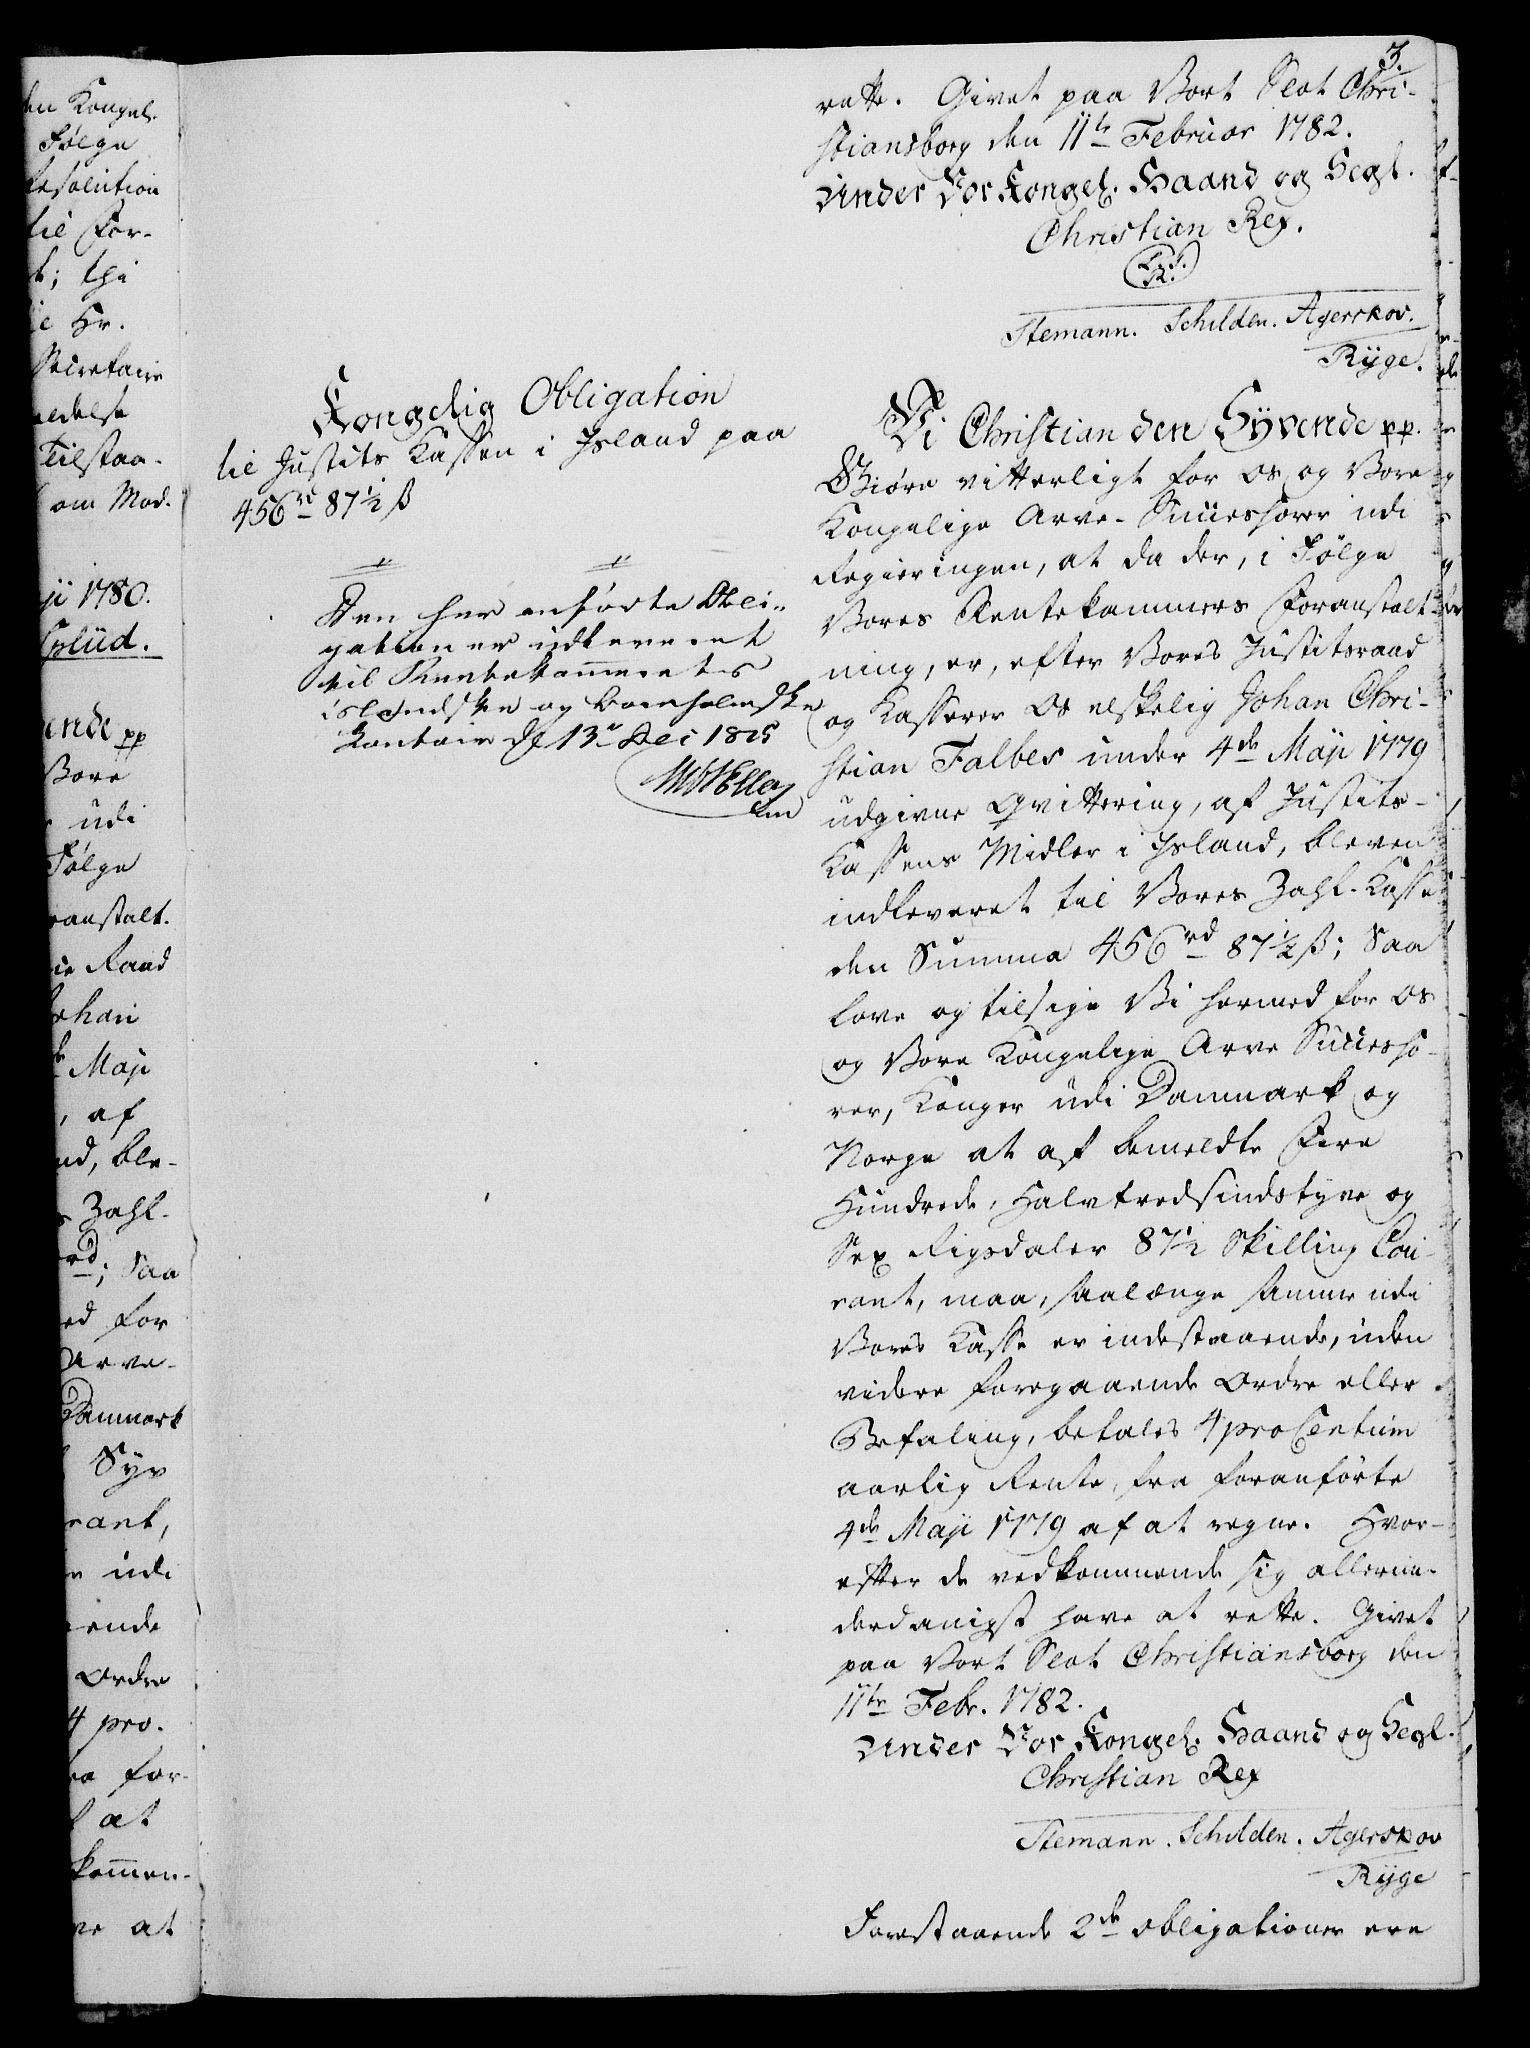 3.
rette. Givet paa Vort Slot Chri-
stiansborg den 11te Februar 1782.
Under Vor Kongel. Haand og Segl.
Christian Rex.
L. S.
R.
Stemann. Schilden. Agerskov.
Ryge.
Kongelig Obligation
til Justits Kassen i Island paa
456 rd 87½ ß
Den her anførte Obli-
gation er udleveret
til Rentekammerets
islandske og bornholmske
Contoir d. 13e Dec 1815
Vi Christian den Syvende pp.
Giøre vitterligt for os og Vore
Kongelige Arve-Successorer udi
Regieringen, at da der, i Følge
Vores Rentekammers Foranstalt-
ning, er, efter Vores Justitsraad
og Kasserer Os elskelig Johan Chri-
stian Falbes under 4de Maji 1779
udgivne Qvittering, af Justits-
Kassens Midler i Island, bleven
indleveret til Vores Zahl-Kasse
den Summa 456 rd 87½ ß; Saa
love og tilsige Vi hermed for os
og Vore Kongelige Arve Successo-
rer, Konger udi Danmark og
Norge at af bemeldte Fire
Hundrede, Halvtredsindstyve og
Sex Rigsdaler 87½ Skilling Cou-
rant, maa, saalænge samme udi
Vores Kasse er indestaaende, uden
videre foregaaende Ordre eller
Befaling, betales 4 pro Centum
aarlig Rente, fra foranførte
4de Maji 1779 af at regne. Hvor-
efter de vedkommende sig allerun-
derdanigst have at rette. Givet
paa Vort Slot Christiansborg den
11te Febr. 1782.
Under Vor Kongel. Haand og Segl.
Christian Rex
Stemann. Schilden. Agerskov
Ryge
Forestaaende 2de Obligationer ere